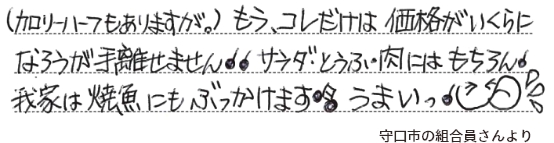 (カロリーハーフもありますが。)もう、コレだけは価格がいくらに
なろうが手離せません!!サラダ・とうふ・肉にはもちろん!
我家は焼魚にもぶっかけます!!うまいっ!
守口市の組合員さんより